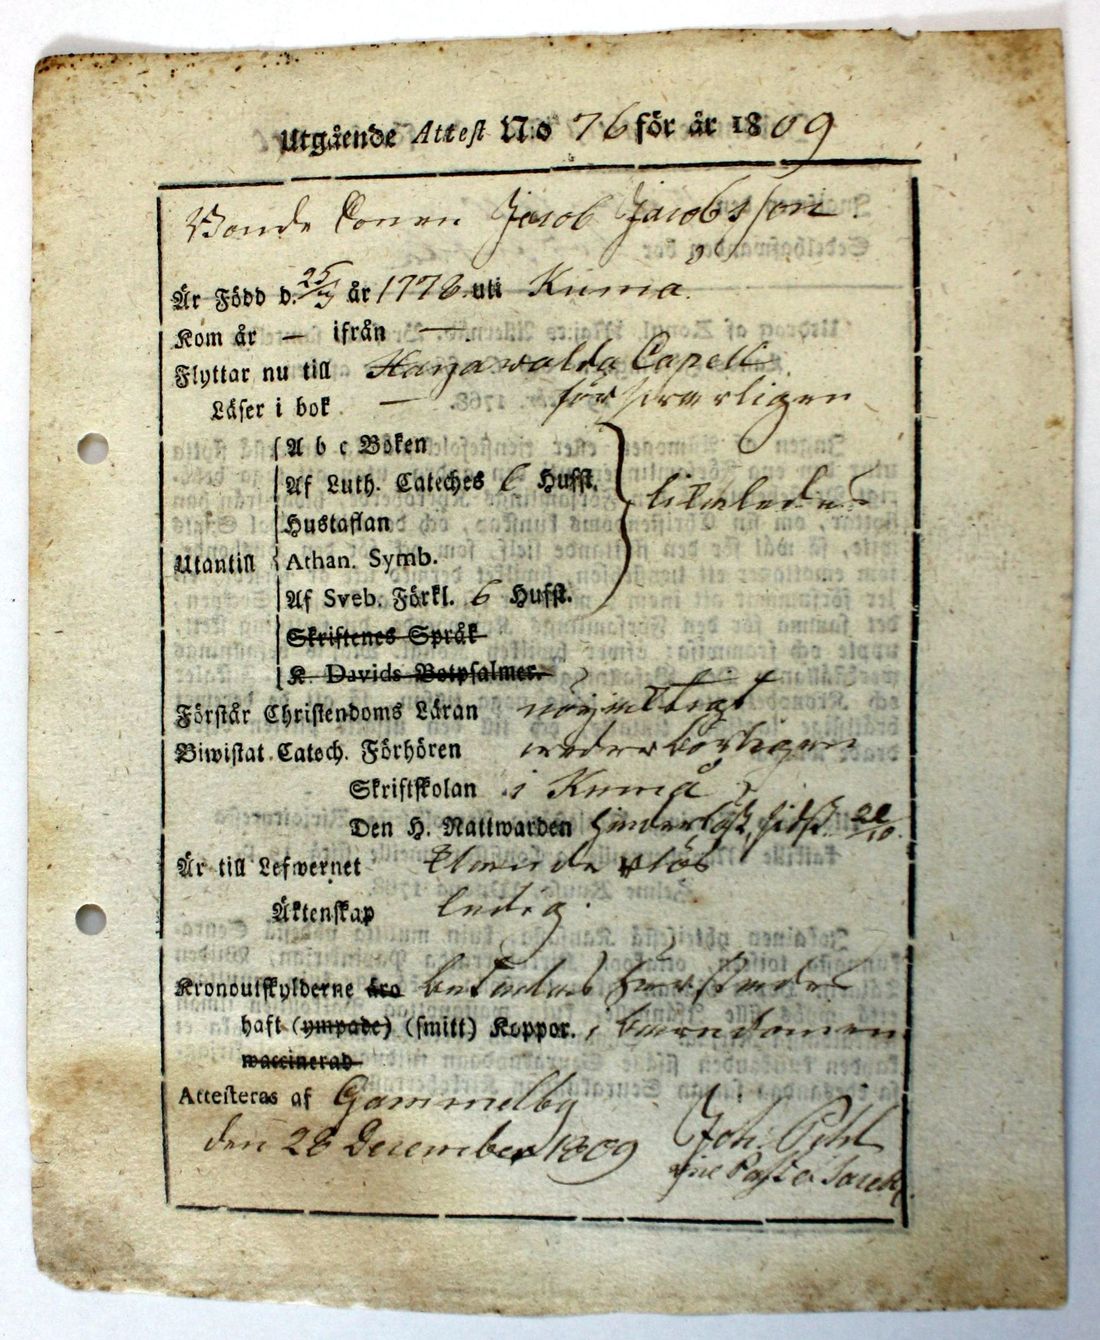 Utgående Attest No 76 för år 1809
Bonde Sonen Jacob Jacobsson
Är Född d. 25/3 år 1778 uti Kumo
Kom år — ifrån —
Flyttar nu till Capell
Läser i bok — försvarligen
A b c Boken
Af Luth. Cateches 6 Hufst.
Hustaflan
Utantill Athan. Symb.
Af Sveb. Förkl. 6 Hufst.
Skriftenes Språk
K. Davids Botpsalmer.
Förstår Christendoms Läran nöjaktigt
Biwistat Catech. Förhören wederbörligen
Skriftskolan i Kumo
Den H. Nattwarden sidst
Är till Lefwernet
Äktenskap ledig
Kronoutskylderne äro betalas
haft (ympade) (smitt) Koppor. i barndomen
waccinerad
Attesteras af Gammelby
den 28 December 1809 Joh: